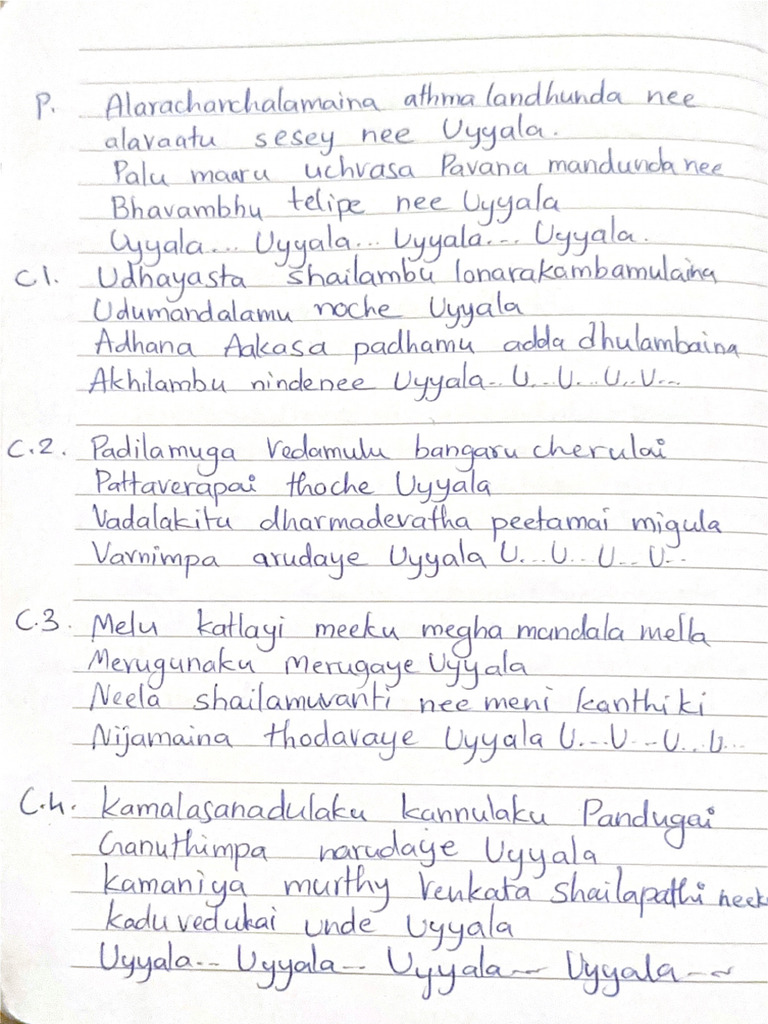 P. Alarachanchalamaina athma landhunda nee
alavaatu sesey nee Uyyala.
Palu maaru uchvasa Pavana mandunda nee
Bhavambhu telipe nee Uyyala
Uyyala... Uyyala... Uyyala... Uyyala.
C1. Udhayasta shailambu lonarakambamulaina
Udumandalamu noche Uyyala
Adhana Aakasa padhamu adda dhulambaina
Akhilambu nindenee Uyyala.. U... U... U.. U...
C.2. Padilamuga Vedamulu bangaru cherulai
Pattaverapai thoche Uyyala
Vadalakitu dharmadevatha peetamai migula
Varnimpa arudaye Uyyala U... U.. U... U..
C.3. Melu katlayi meeku megha mandala mella
Merugunaku merugaye Uyyala
Neela shailamuvanti nee meni kanthiki
Nijamaina thodavaye Uyyala U...U...U...U...
C.4. Kamalasanadulaku kannulaku Pandugai
Ganuthimpa narudaye Uyyala
Kamaniya murthy Venkata shailapathi neek
kadu vedukai unde Uyyala
Uyyala.. Uyyala.. Uyyala~ Uyyala-~